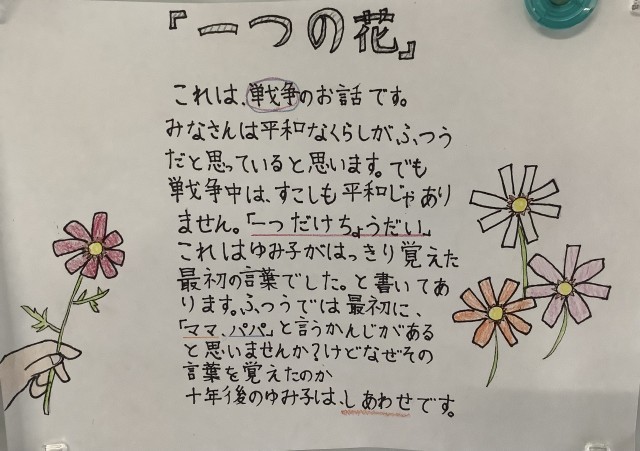 『一つの花』
これは、戦争のお話です。
みなさんは平和なくらしが、ふつう
だと思っていると思います。でも
戦争中は、すこしも平和じゃあり
ません。「一つだけちょうだい。」
これはゆみ子がはっきり覚えた
最初の言葉でした。と書いてあ
ります。ふつうでは最初に、
「ママ、パパ」と言うかんじがある
と思いませんか?けどなぜその
言葉を覚えたのか
十年後のゆみ子は、しあわせです。